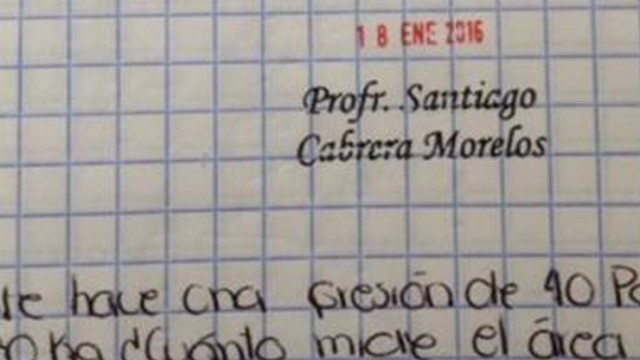 18 ENE 2016
Profr. Santiago
Cabrera Morelos
hace una presión de 40 Pa
¿Cuánto micre el área